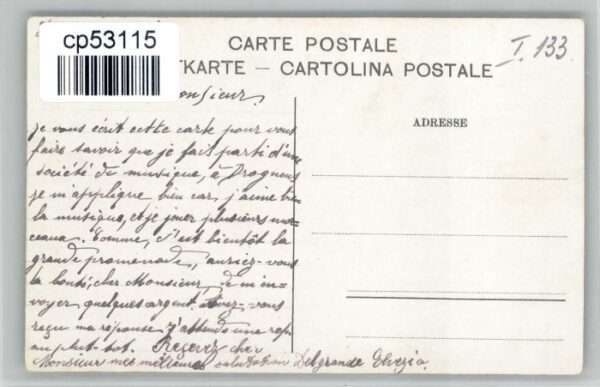 cp53115
CARTE POSTALE
I. 133
TKARTE — CARTOLINA POSTALE
onsieur.
ADRESSE
Je vous écrit cette carte pour vous
faire savoir que je fais parti d'une
société de musique, à Drognens
je m'applique bien car j'aime bien
la musique, et je jouer plusieurs mor-
ceaux. Comme, c'est bientôt la
grande promenade, auriez-vous
la bonté, cher Monsieur, de m'en-
voyer quelques argent. Avez-vous
reçu ma réponse j'attends une rep
au plutot. Recevez cher
Monsieur mes meilleures salutation Delgrande Elvezio